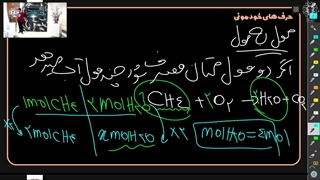 حرف های خودمونی
مول به مول
اگر دو مول متان مصرف شود چند مول آب تولید میشود
1molCH4 | 2molH2O
CH4 + 2O2 → 2H2O + CO2
x2 2molCH4 | xmolH2O x2
molH2O = 4mol